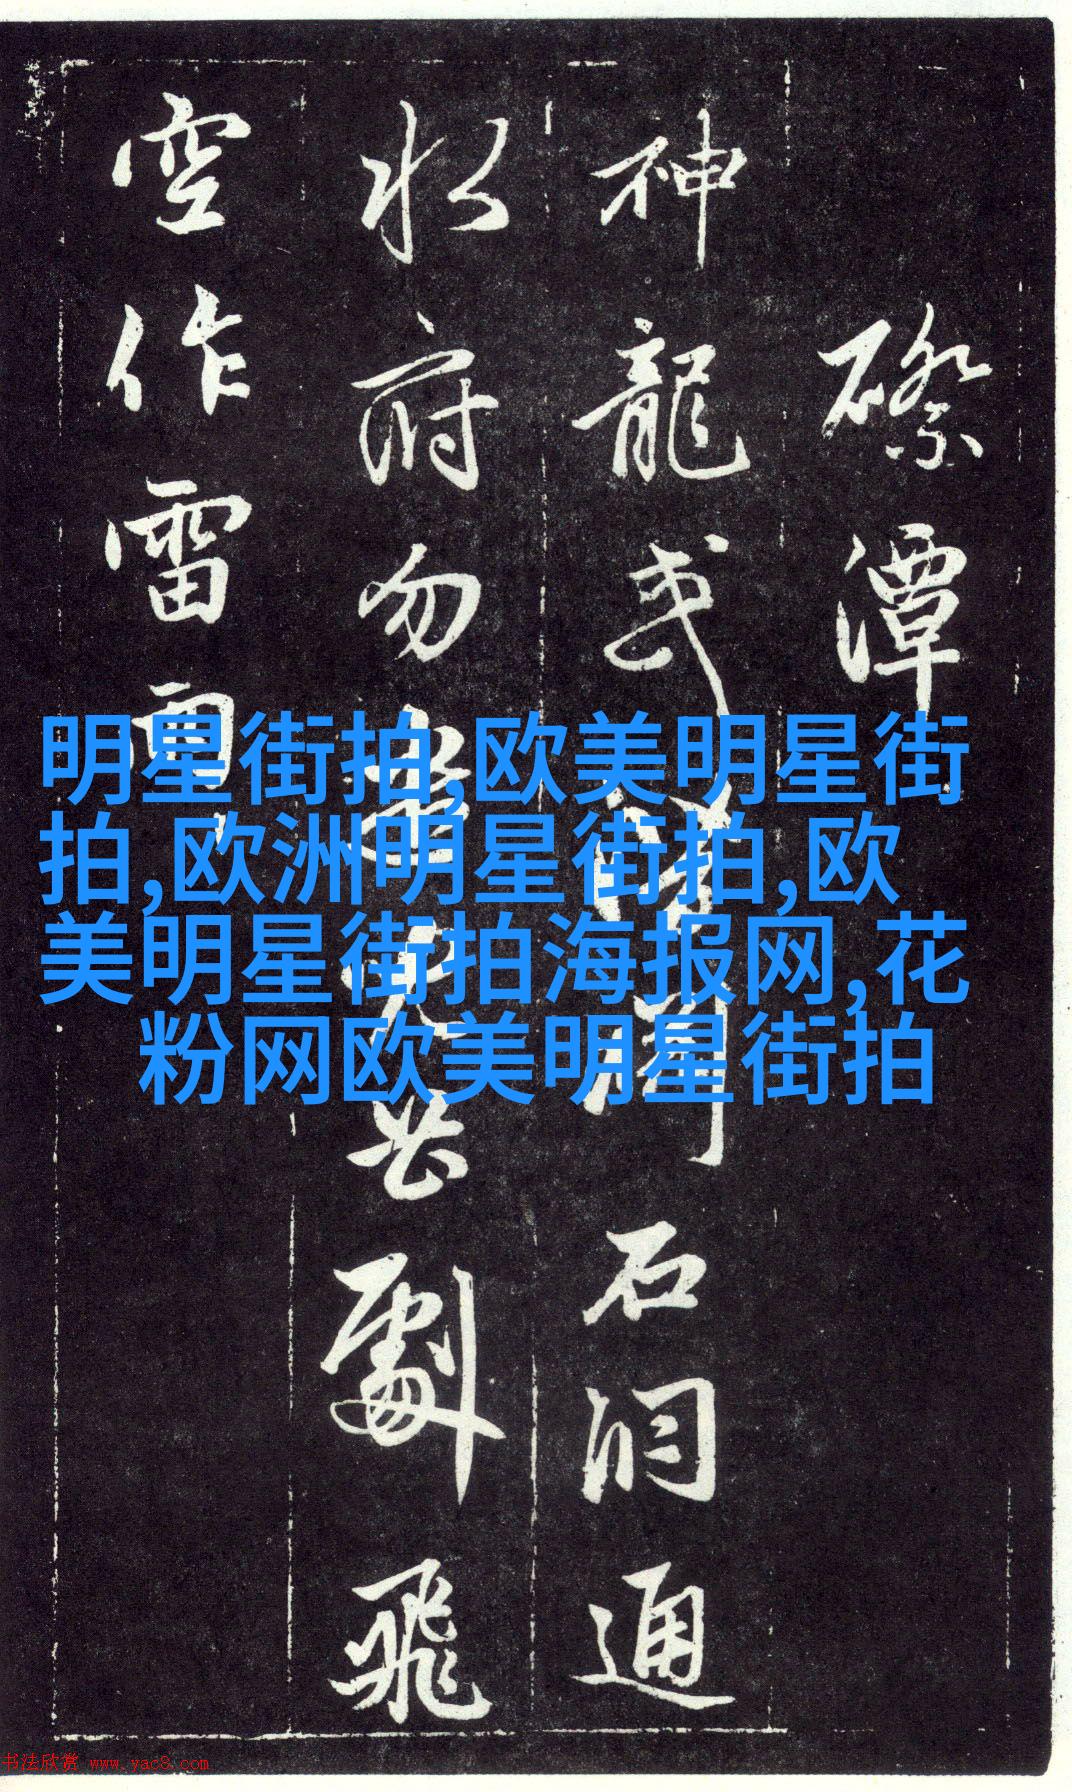 磜潭
神龍或石洞通
水府勿劇飛
空作雷雨
明星街拍,欧美明星街
拍,欧洲明星街拍,欧
美明星街拍海报网,花
粉网欧美明星街拍
书法欣赏 www.yac8.com